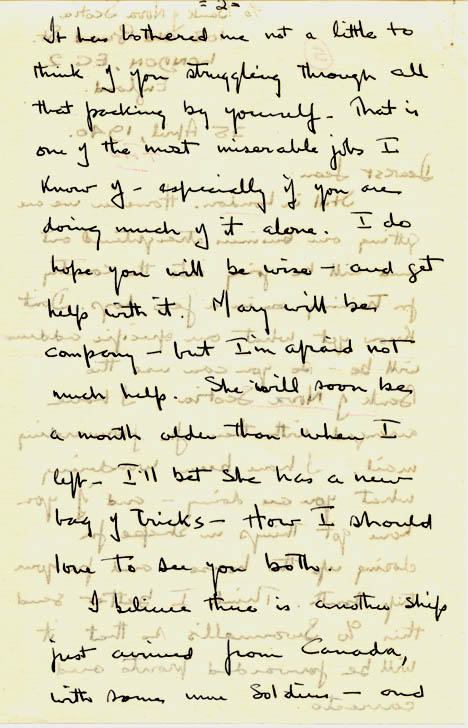 - 2 -
It has bothered me not a little to
think of you struggling through all
that packing by yourself - That is
one of the most miserable jobs I
know of - especially if you are
doing much of it alone. I do
hope you will be wise - and get
help with it. Mary will be
company - but I'm afraid not
much help. She will soon be
a month older than when I
left - I'll bet she has a new
bag of tricks - How I should
love to see you both.
I believe there is another ship
just arrived from Canada,
with some more Soldiers - and